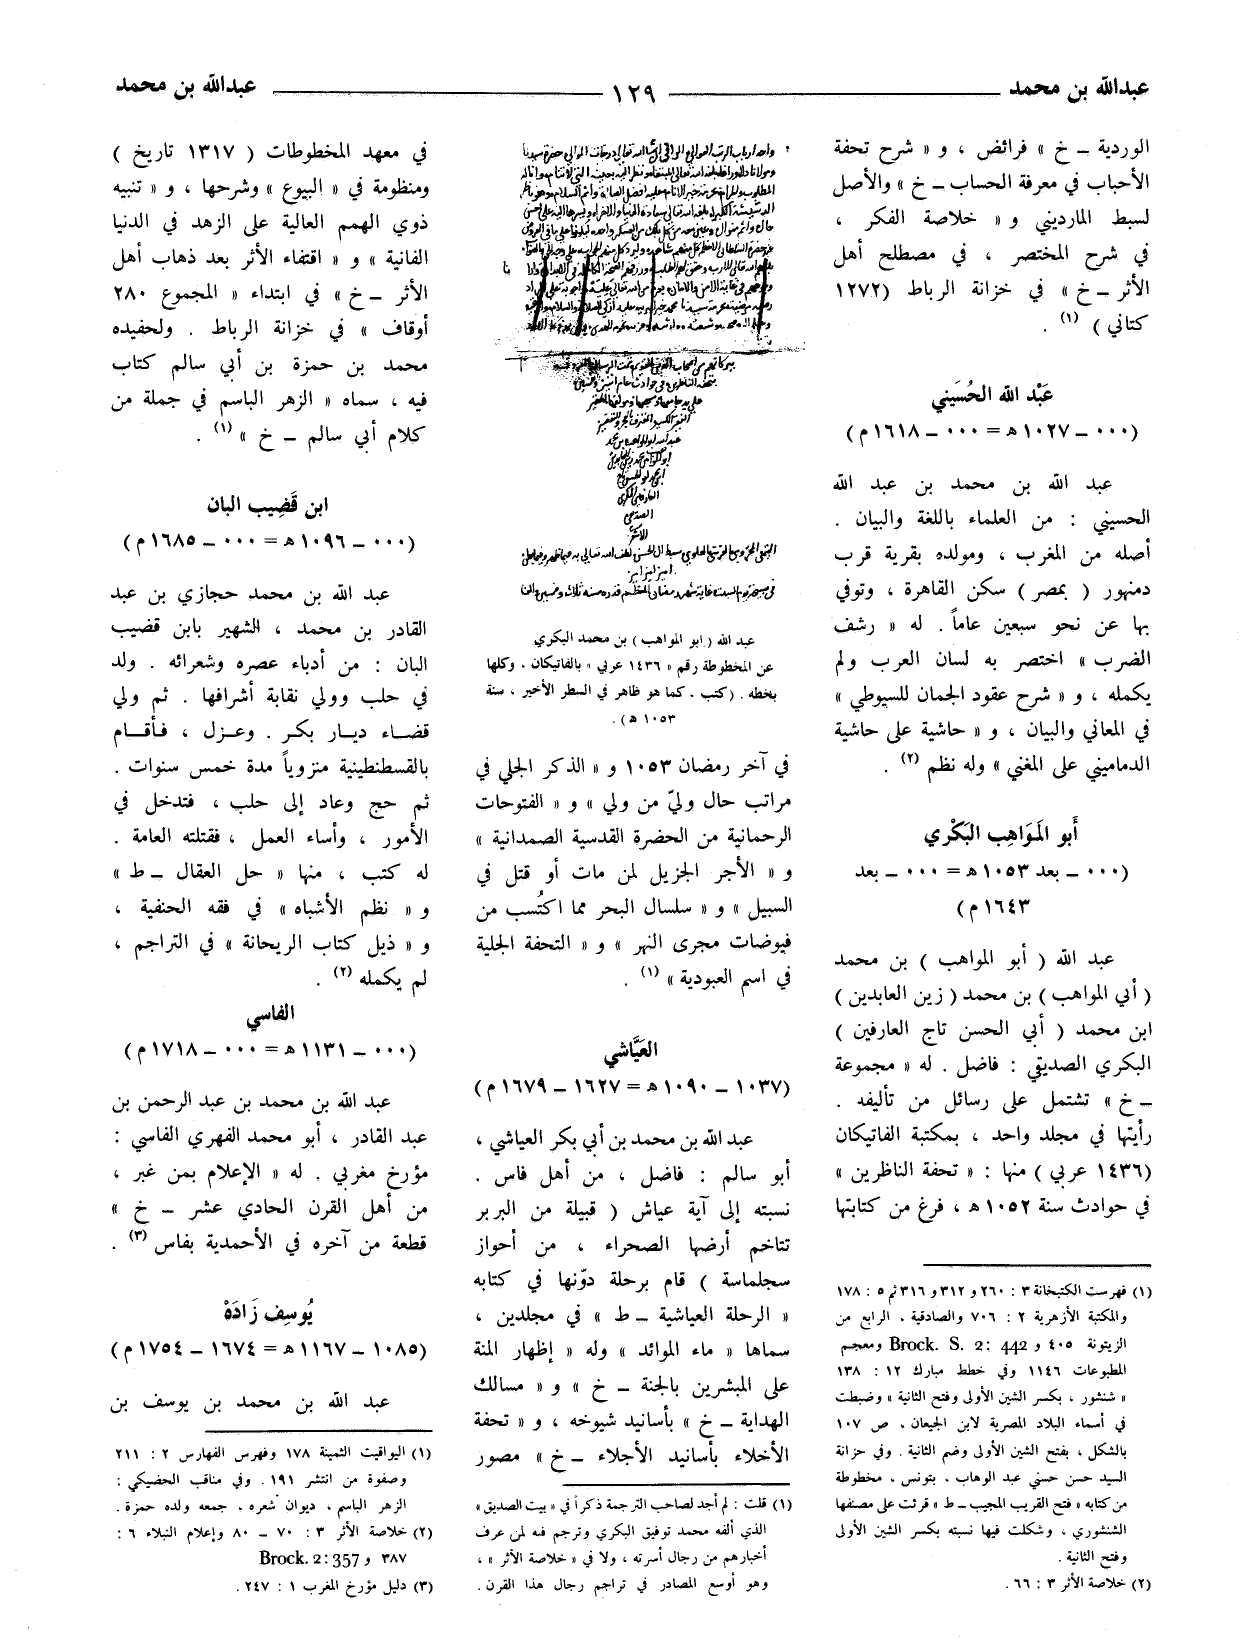 عبدالله بن محمد ١٢٩ عبدالله بن محمد
الوردية ـ خ » فرائض ، و « شرح تحفة
الأحباب في معرفة الحساب ـ خ » والأصل
لسبط المارديني و « خلاصة الفكر ،
في شرح المختصر ، في مصطلح أهل
الأثر ـ خ » في خزانة الرباط (١٢٧٢
كتاني ) (١) .
عَبْد الله الحُسَيني
(٠٠٠ ـ ١٠٢٧ ه‍ = ٠٠٠ ـ ١٦١٨ م)
عبد الله بن محمد بن عبد الله
الحسيني : من العلماء باللغة والبيان .
أصله من المغرب ، ومولده بقرية قرب
دمنهور ( بمصر ) سكن القاهرة ، وتوفي
بها عن نحو سبعين عاماً . له « رشف
الضرب » اختصر به لسان العرب ولم
يكمله ، و « شرح عقود الجمان للسيوطي »
في المعاني والبيان ، و « حاشية على حاشية
الدماميني على المغني » وله نظم (٢) .
أَبو المَوَاهِب البَكْري
(٠٠٠ ـ بعد ١٠٥٣ ه‍ = ٠٠٠ ـ بعد
١٦٤٣ م)
عبد الله ( أبو المواهب ) بن محمد
( أبي المواهب ) بن محمد ( زين العابدين )
ابن محمد ( أبي الحسن تاج العارفين )
البكري الصديقي : فاضل . له « مجموعة
ـ خ » تشتمل على رسائل من تأليفه .
رأيتها في مجلد واحد ، بمكتبة الفاتيكان
(١٤٣٦ عربي ) منها : « تحفة الناظرين »
في حوادث سنة ١٠٥٢ ه‍ ، فرغ من كتابتها
(١) فهرست الكتبخانة ٣ : ٢٦٠ و ٣١٢ و ٣١٦ ثم ٥ : ١٧٨
والمكتبة الأزهرية ٢ : ٧٠٦ والصادقية ، الرابع من
الزيتونة ٤٠٥ و Brock. S. 2: 442 ومعجم
المطبوعات ١١٤٦ وفي خطط مبارك ١٢ : ١٣٨
« شنشور ، بكسر الشين الأولى وفتح الثانية » وضبطت
في أسماء البلاد المصرية لابن الجيعان ، ص ١٠٧
بالشكل ، بفتح الشين الأولى وضم الثانية . وفي خزانة
السيد حسن حسني عبد الوهاب ، بتونس ، مخطوطة
من كتابه « فتح القريب المجيب ـ ط » قرئت على مصنفها
الشنشوري ، وشكلت فيها نسبته بكسر الشين الأولى
وفتح الثانية .
(٢) خلاصة الأثر ٣ : ٦٦ .
عبد الله ( ابو المواهب ) بن محمد البكري
عن المخطوطة رقم « ١٤٣٦ عربي » بالفاتيكان ، وكلها
بخطه . (كتب ، كما هو ظاهر في السطر الأخير ، سنة
١٠٥٣ ه‍) .
في آخر رمضان ١٠٥٣ و « الذكر الجلي في
مراتب حال وليّ من ولي » و « الفتوحات
الرحمانية من الحضرة القدسية الصمدانية »
و « الأجر الجزيل لمن مات أو قتل في
السبيل » و « سلسال البحر مما اكتُسب من
فيوضات مجرى النهر » و « التحفة الجلية
في اسم العبودية » (١) .
العَيَّاشي
(١٠٣٧ ـ ١٠٩٠ ه‍ = ١٦٢٧ ـ ١٦٧٩ م)
عبد الله بن محمد بن أبي بكر العياشي ،
أبو سالم : فاضل ، من أهل فاس .
نسبته إلى آية عياش ( قبيلة من البربر
تتاخم أرضها الصحراء ، من أحواز
سجلماسة ) قام برحلة دوّنها في كتابه
« الرحلة العياشية ـ ط » في مجلدين ،
سماها « ماء الموائد » وله « إظهار المنة
على المبشرين بالجنة ـ خ » و « مسالك
الهداية ـ خ » بأسانيد شيوخه ، و « تحفة
الأخلاء بأسانيد الأجلاء ـ خ » مصور
(١) قلت : لم أجد لصاحب الترجمة ذكراً في « بيت الصديق »
الذي ألفه محمد توفيق البكري وترجم فيه لمن عرف
أخبارهم من رجال أسرته ، ولا في « خلاصة الأثر » ،
وهو أوسع المصادر في تراجم رجال هذا القرن .
في معهد المخطوطات ( ١٣١٧ تاريخ )
ومنظومة في « البيوع » وشرحها ، و « تنبيه
ذوي الهمم العالية على الزهد في الدنيا
الفانية » و « اقتفاء الأثر بعد ذهاب أهل
الأثر ـ خ » في ابتداء « المجموع ٢٨٠
أوقاف » في خزانة الرباط . ولحفيده
محمد بن حمزة بن أبي سالم كتاب
فيه ، سماه « الزهر الباسم في جملة من
كلام أبي سالم ـ خ » (١) .
ابن قَضِيب البان
(٠٠٠ ـ ١٠٩٦ ه‍ = ٠٠٠ ـ ١٦٨٥ م)
عبد الله بن محمد حجازي بن عبد
القادر بن محمد ، الشهير بابن قضيب
البان : من أدباء عصره وشعرائه . ولد
في حلب وولي نقابة أشرافها . ثم ولي
قضاء ديار بكر . وعزل ، فأقام
بالقسطنطينية منزوياً مدة خمس سنوات .
ثم حج وعاد إلى حلب ، فتدخل في
الأمور ، وأساء العمل ، فقتلته العامة .
له كتب ، منها « حل العقال ـ ط »
و « نظم الأشباه » في فقه الحنفية ،
و « ذيل كتاب الريحانة » في التراجم ،
لم يكمله (٢) .
الفاسي
(٠٠٠ ـ ١١٣١ ه‍ = ٠٠٠ ـ ١٧١٨ م)
عبد الله بن محمد بن عبد الرحمن بن
عبد القادر ، أبو محمد الفهري الفاسي :
مؤرخ مغربي . له « الإعلام بمن غبر ،
من أهل القرن الحادي عشر ـ خ »
قطعة من آخره في الأحمدية بفاس (٣) .
يُوسِف زَادَهْ
(١٠٨٥ ـ ١١٦٧ ه‍ = ١٦٧٤ ـ ١٧٥٤ م)
عبد الله بن محمد بن يوسف بن
(١) اليواقيت الثمينة ١٧٨ وفهرس الفهارس ٢ : ٢١١
وصفوة من انتشر ١٩١ . وفي مناقب الحضيكي :
الزهر الباسم ، ديوان شعره ، جمعه ولده حمزة .
(٢) خلاصة الأثر ٣ : ٧٠ ـ ٨٠ وإعلام النبلاء ٦ :
٣٨٧ و Brock. 2: 357
(٣) دليل مؤرخ المغرب ١ : ٢٤٧ .